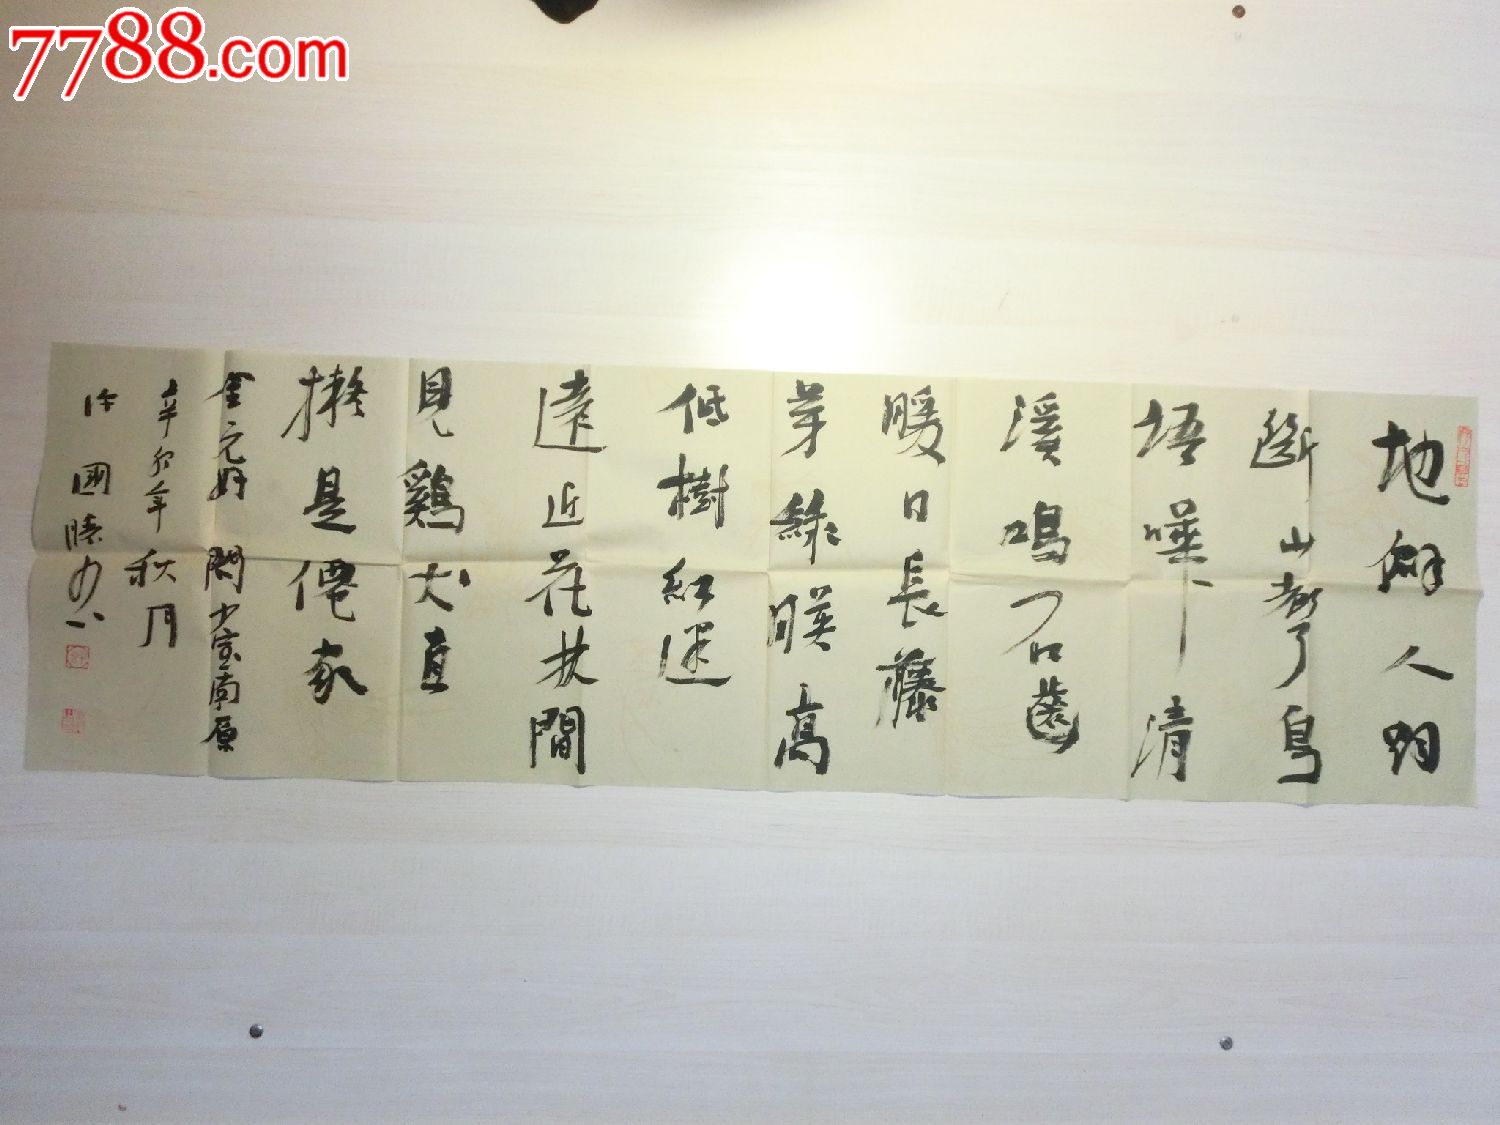 7788.com
地僻人
斷山鳥
語嘩清
溪鳴石齒
暖日長藤
芽綠映高
低樹紅迷
遠近花林間
見鷄犬直
擬是僊家
金元好問少室南原
辛卯年秋月
許國